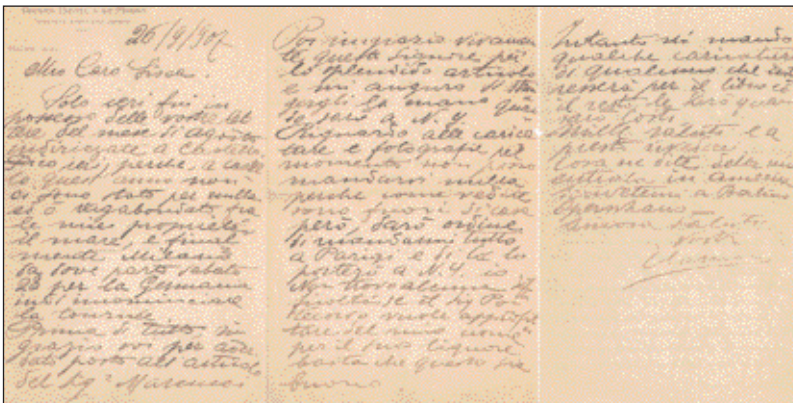 26/9/907
Mio Caro Sisca.
Solo ieri fui in
possesso delle vostre let
tere del mese di agosto
indirizzate a Castello
perchè, a castel
lo quest'anno non
ci sono stato per nulla
si è vagabondato fra
le mie proprietà
il mare, e final
mente Milano
da dove parto sabato
28 per la Germania
incominciare
la tournée
Prima di tutto rin
grazio voi per aver
dato posto all'articolo
del Sigr Marcucci
Poi ringrazio vivamen
te questo Signore per
lo splendido articolo
e mi auguro di strin
gergli la mano quan
do sarò a N. Y.
Riguardo alle carica
ture e fotografie pel
momento non posso
mandarvi nulla
perchè come vedete
sono fuori di casa
però, darò ordine
di mandarmi tutto
a Parigi e di là lo
porterò a N. Y. io
Non trovo alcuna dif
ficoltà se il Sig
vuole approfit
tare del mio nome
per il suo liquore
basta che questo sia
buono
Intanto vi mando
qualche caricatura
di qualcuno che inte
resserà per il libro e
il resto le darò quan
sarò costì
Mille saluti e a
presto rivederci
Cosa ne dite della mia
entrata in america
Scrivetemi a Berlino
Opernhaus
ancora saluti
vostro